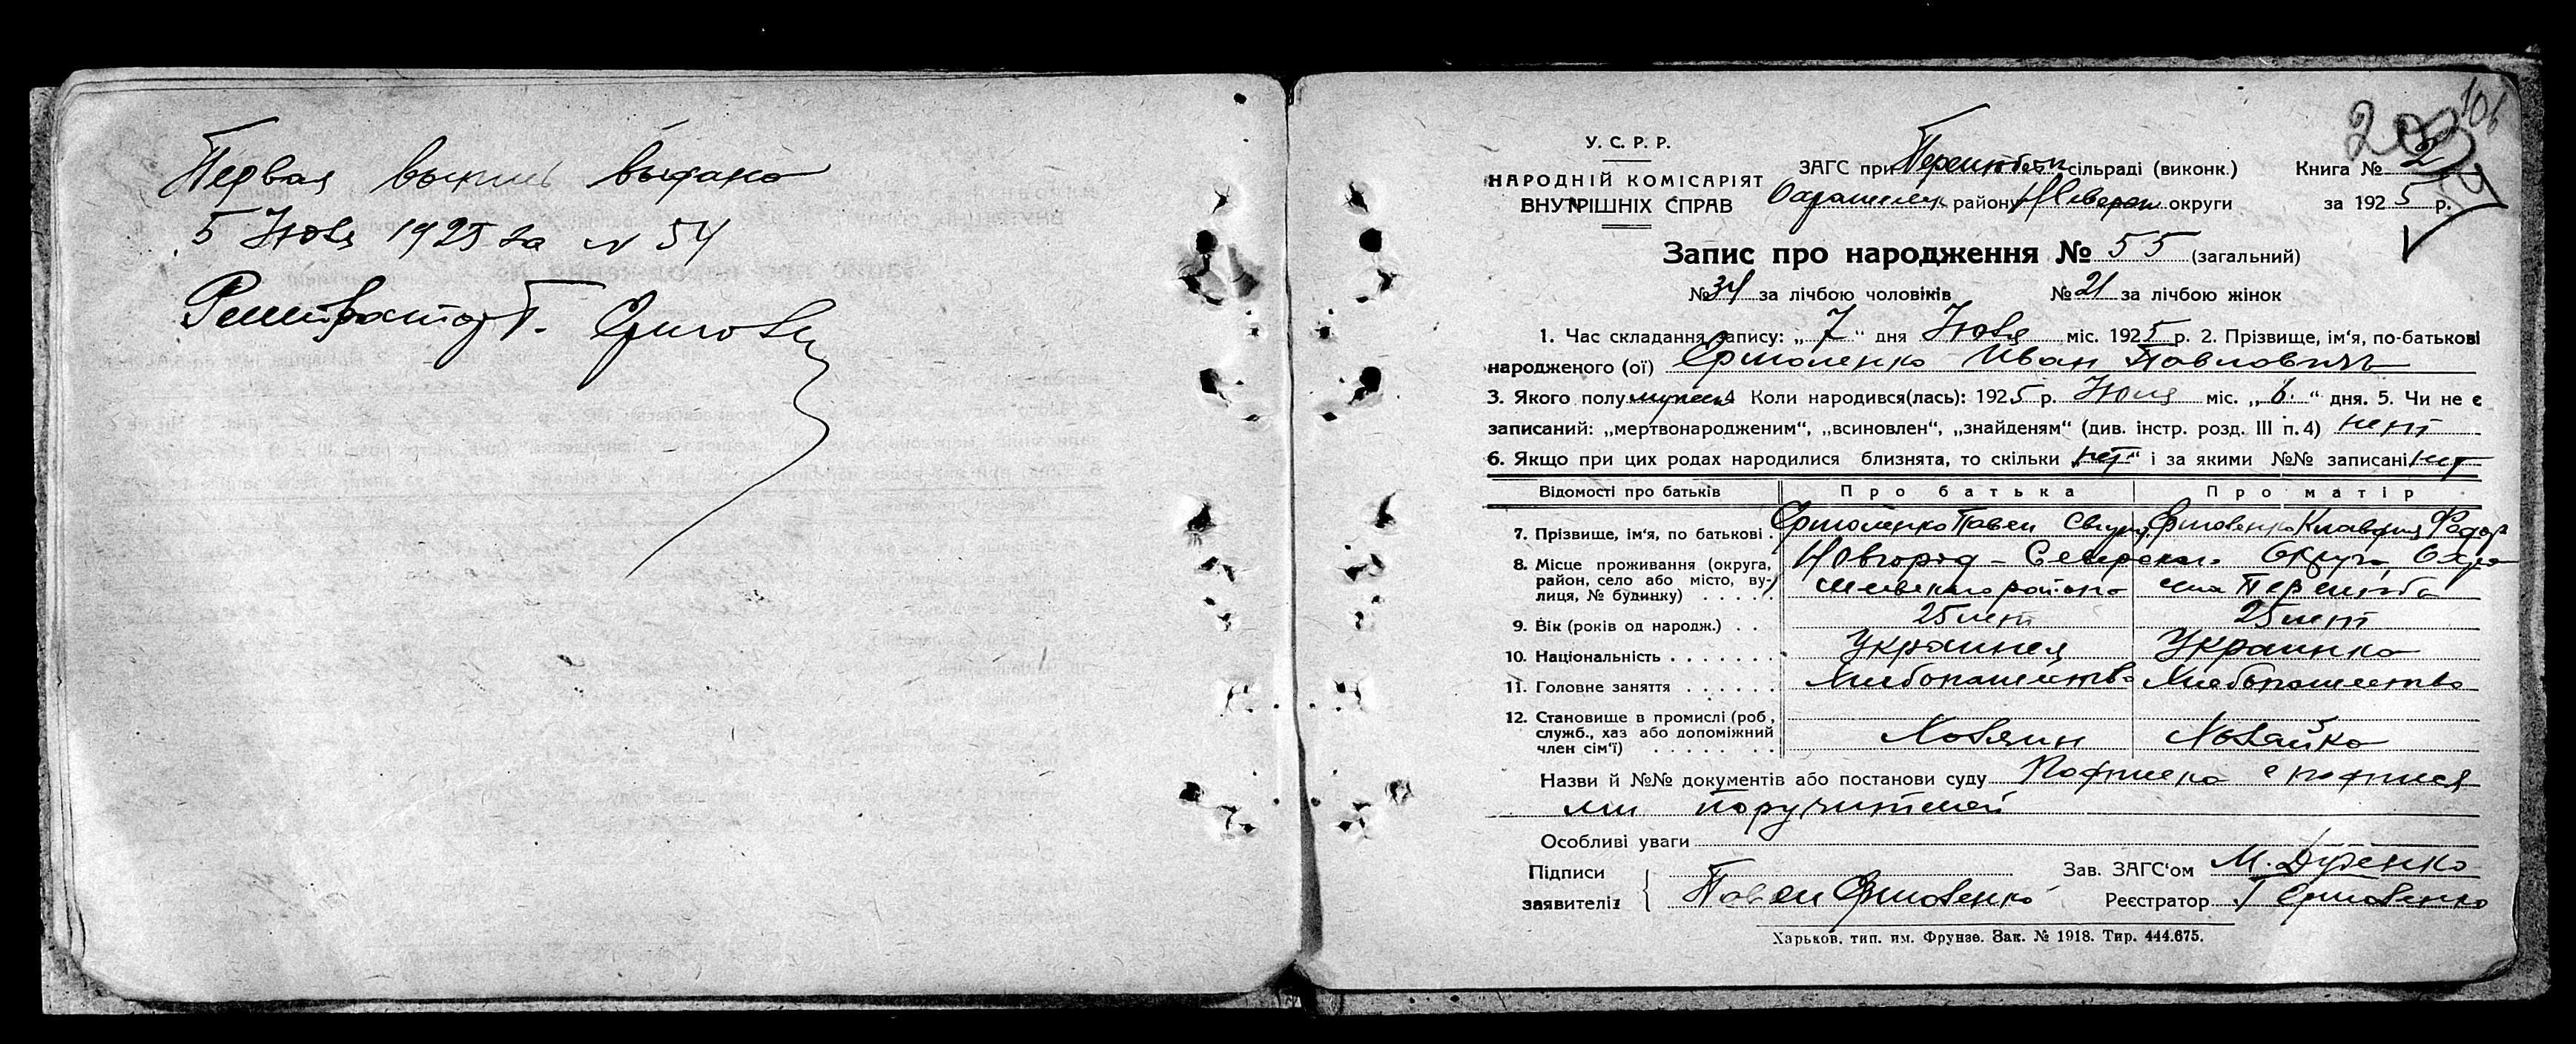 Первая выпись выдана
5 Июля 1925 за № 54
Регистратор Г.
106
2
У. С. Р. Р.
НАРОДНІЙ КОМІСАРІЯТ
ВНУТРІШНІХ СПРАВ
ЗАГС при сільраді (виконк.)
району округи
Книга № 2
за 1925 р.
Запис про народження № 55 (загальний)
№ 34 за лічбою чоловіків № 21 за лічбою жінок
1. Час складання запису: „ 7 “ дня Июля міс. 1925 р. 2. Прізвище, ім'я, по-батькові
народженого (ої) Ермоленко Иван Павловичъ
3. Якого полу 4 Коли народився(лась): 1925 р. Июля міс. „ 6. “ дня. 5. Чи не є
записаний: „мертвонародженим“, „всиновлен“, „знайденям“ (див. інстр. розд. III п. 4) нет
6. Якщо при цих родах народилися близнята, то скільки „нет“ і за якими №№ записані нет
Відомості про батьків Про батька Про матір
7. Прізвище, ім'я, по батькові . Ермоленко Павел Ермоленко Клавдия Федор
8. Місце проживання (округа, район, село або місто, вулиця, № будинку) . . . . . Новгород-Северска Округа
района
9. Вік (років од народж.) . . 25 лет 25 лет
10. Національність . . . . . . . Украинец Украинка
11. Головне заняття . . . . . . Хлебопашество Хлебопашество
12. Становище в промислі (роб, служб., хаз або допоміжний член сім'ї) . . . . . . . Хозяин Хозяйка
Назви й №№ документів або постанови суду Подписка с подпися
ми поручителей
Особливі уваги
Підписи
заявителів Павел Ермоленко
Зав. ЗАГС'ом М.
Реєстратор Г Ермоленко
Харьков. тип. им. Фрунзе. Зак. № 1918. Тир. 444.675.